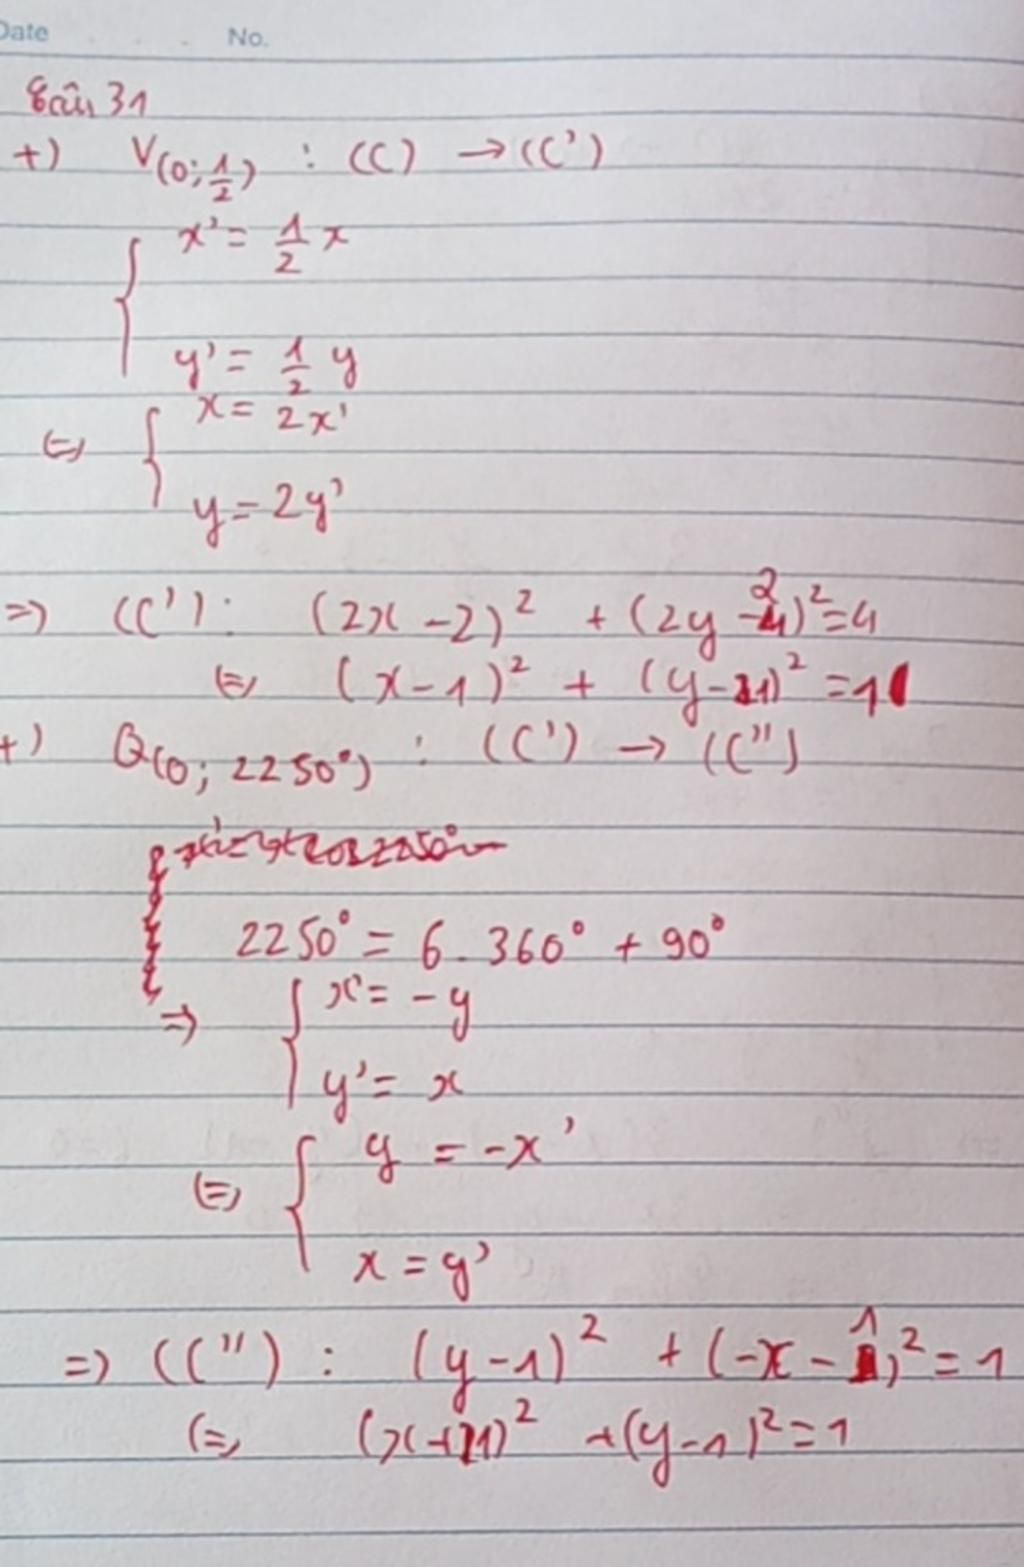 Date No.
Câu 31
+) V(O; 1/2) : (C) → (C')
{ x' = 1/2 x
y' = 1/2 y
⇔ { x = 2x'
y = 2y'
⇒ (C'): (2x - 2)² + (2y - 2)² = 4
⇔ (x - 1)² + (y - 1)² = 1
+) Q(O; 2250°) : (C') → (C'')
2250° = 6.360° + 90°
⇒ { x' = -y
y' = x
⇔ { y = -x'
x = y'
⇒ (C'') : (y - 1)² + (-x - 1)² = 1
⇔ (x + 1)² + (y - 1)² = 1